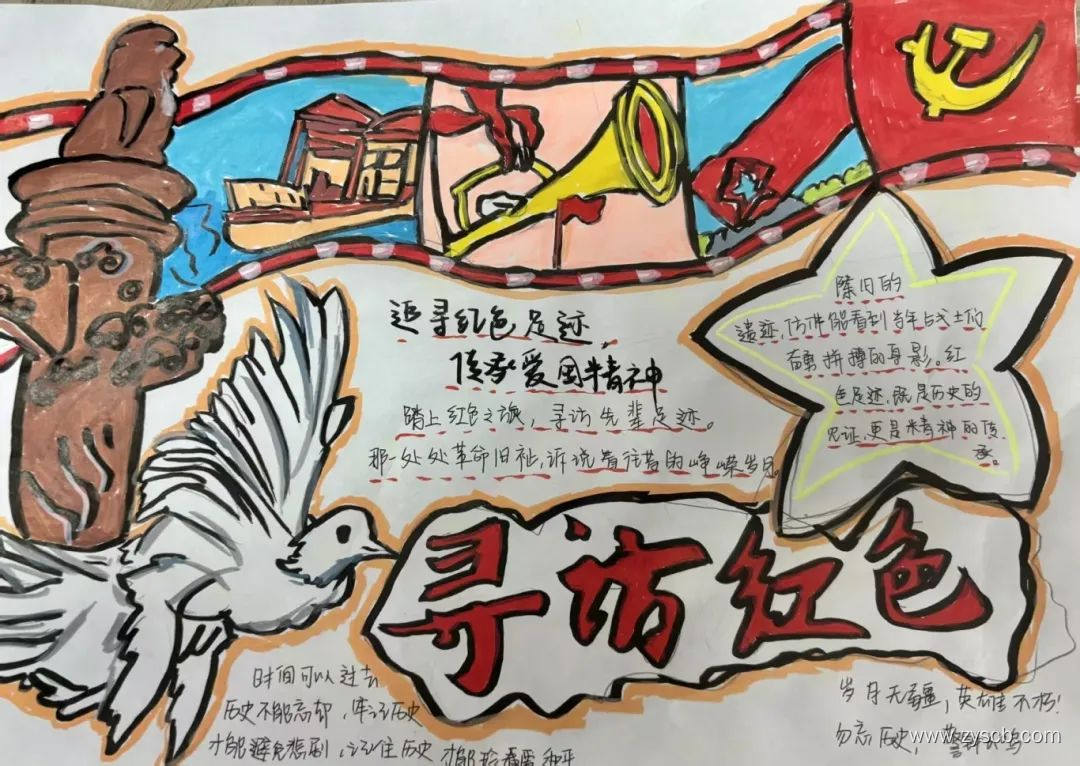 追寻红色足迹，
传承爱国精神
踏上红色之旅，寻访先辈足迹。
那一处处革命旧祉，诉说着往昔的峥嵘岁月。
陈旧的
遗迹，仿佛能看到当年战士们
奋勇拼搏的身影。红
色足迹，既是历史的
见证，更是精神的传
承。
寻访红色
时间可以过去
历史不能忘却，牢记历史
才能避免悲剧，记住历史 才能珍 和平
岁月无疆，英雄不朽！
勿忘历史，警钟
www.zyscb.com